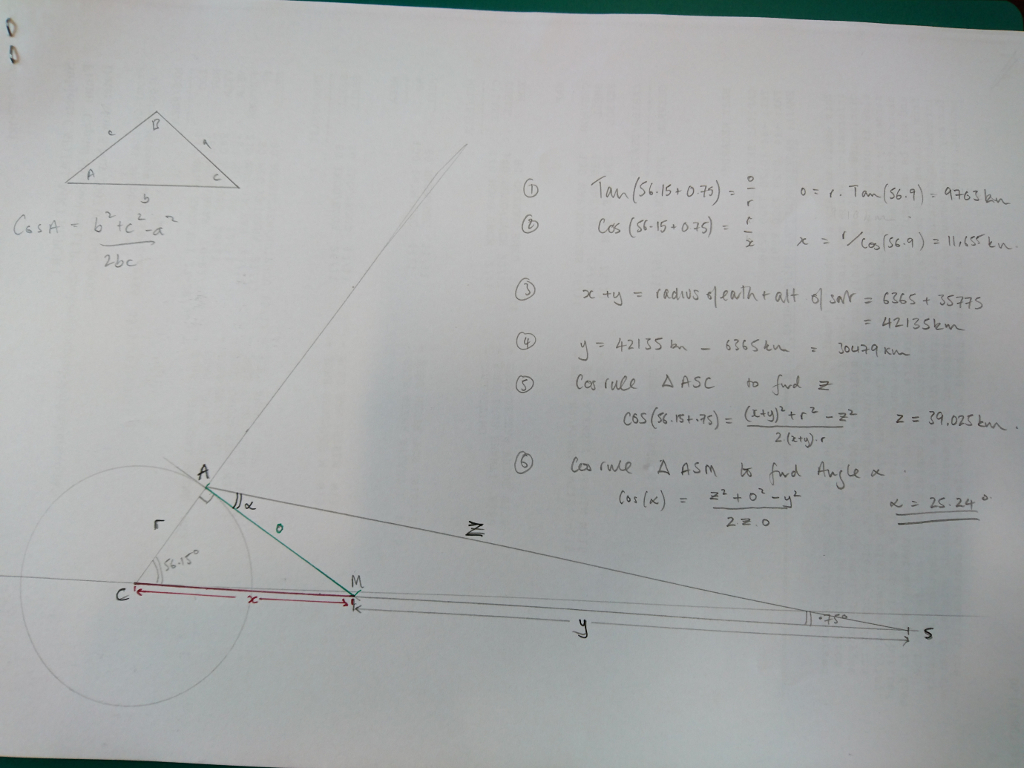 B
c
a
A
C
b
Cos A = b² + c² - a²
2bc
① Tan (56.15 + 0.75) = o/r o = r. Tan (56.9) = 9763 km
② Cos (56.15 + 0.75) = r/x x = r/Cos(56.9) = 11,655 km.
③ x + y = radius of earth + alt of sat = 6365 + 35775
= 42135 km
④ y = 42135 km - 6365 km = 30479 km
⑤ Cos rule △ ASC to find z
Cos (56.15 + .75) = (x+y)² + r² - z² z = 39,025 km.
2(x+y).r
⑥ Cos rule △ ASM to find Angle α.
Cos (α) = z² + o² - y² α = 25.24°
2z.o
A
α
r
o
Z
56.15°
C
M
x
y
.75°
S